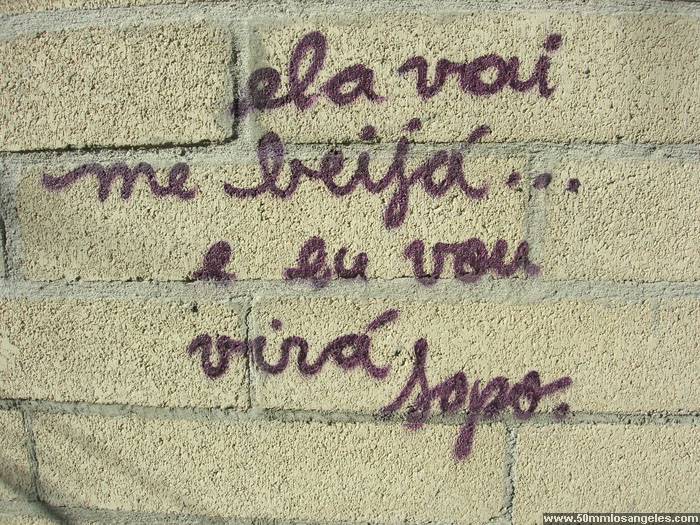 ela vai
me beijá...
e eu vou
virá sopo.
www.50mmlosangeles.com